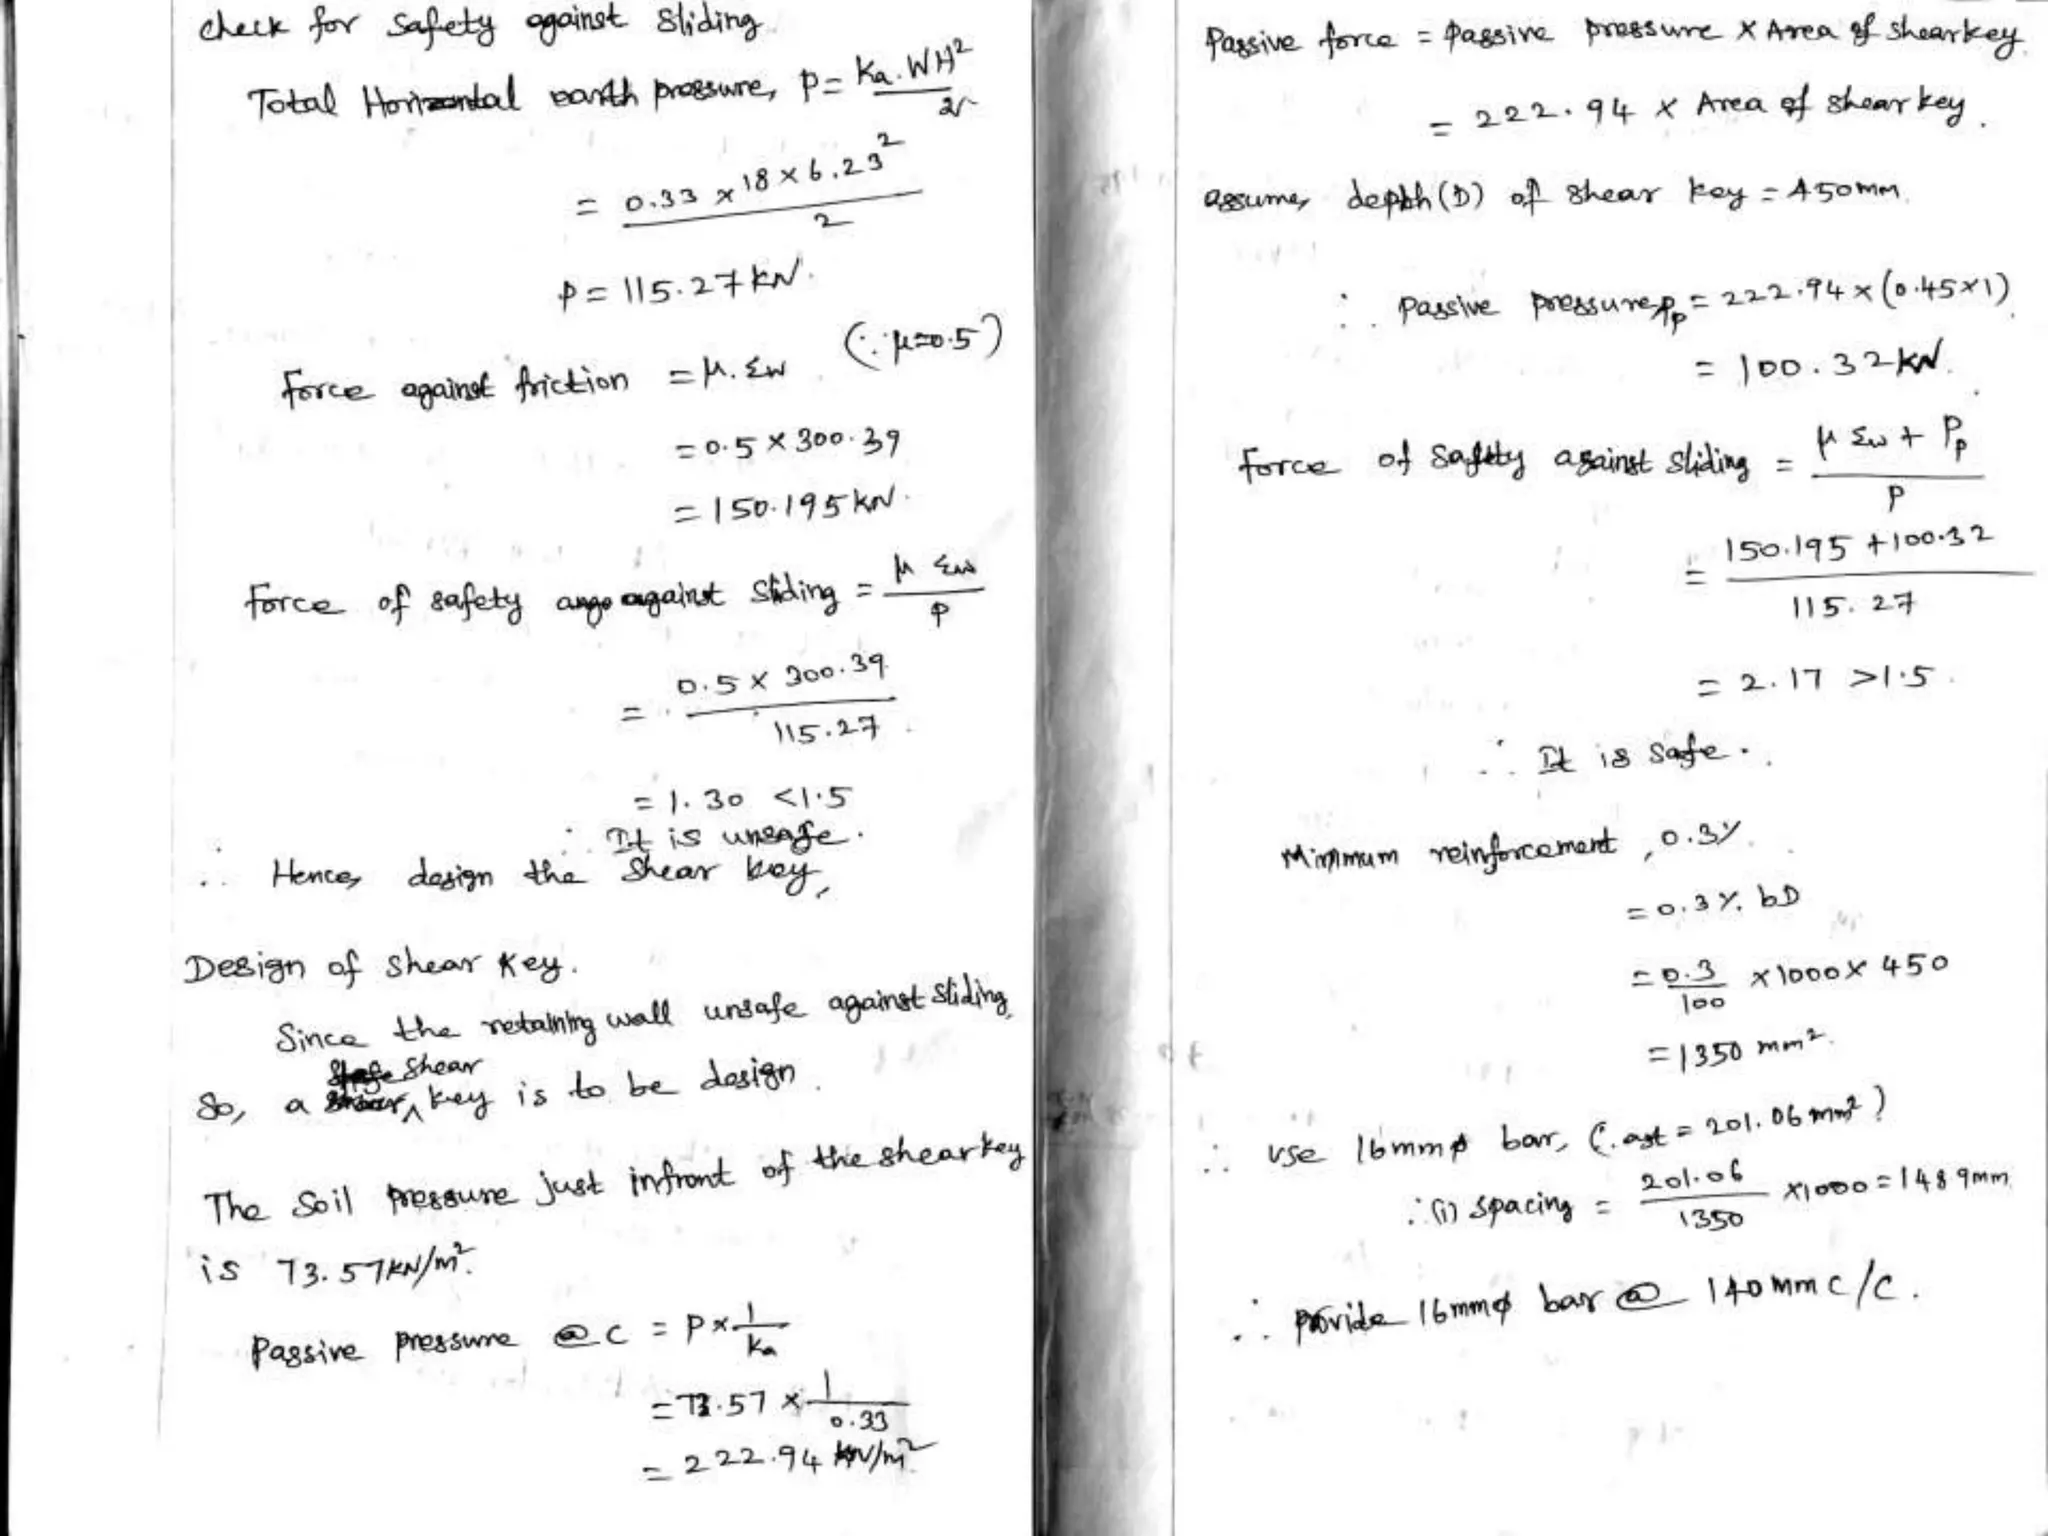 check for safety against sliding
Total Horizontal earth pressure, P = Ka.WH²/2
= 0.33 × 18 × 6.23²/2
P = 115.27 kN.
Force against friction = μ.Σw (∵ μ=0.5)
= 0.5 × 300.39
= 150.195 kN.
Force of safety against sliding = μ Σw/P
= 0.5 × 300.39/115.27
= 1.30 <1.5
∴ It is unsafe.
∴ Hence, design the shear key,
Design of shear key.
Since the retaining wall unsafe against sliding,
So, a shear key is to be design.
The Soil pressure just infront of the shear key
is 73.57 kN/m².
Passive pressure @ C = P × 1/ka
= 73.57 × 1/0.33
= 222.94 kN/m²
Passive force = passive pressure × Area of shear key.
= 222.94 × Area of shear key.
assume, depth (D) of shear key = 450mm.
∴ Passive pressure, Pp = 222.94 × (0.45×1)
= 100.32 kN.
Force of safety against sliding = μ Σw + Pp/P
= 150.195 + 100.32/115.27
= 2.17 >1.5.
∴ It is safe.
Minimum reinforcement, 0.3%.
= 0.3% bD
= 0.3/100 × 1000 × 450
= 1350 mm².
∴ use 16mmφ bar, (∵ ast = 201.06 mm²)
∴ (i) spacing = 201.06/1350 ×1000 = 148 9mm
∴ provide 16mmφ bar @ 140 mm c/c.